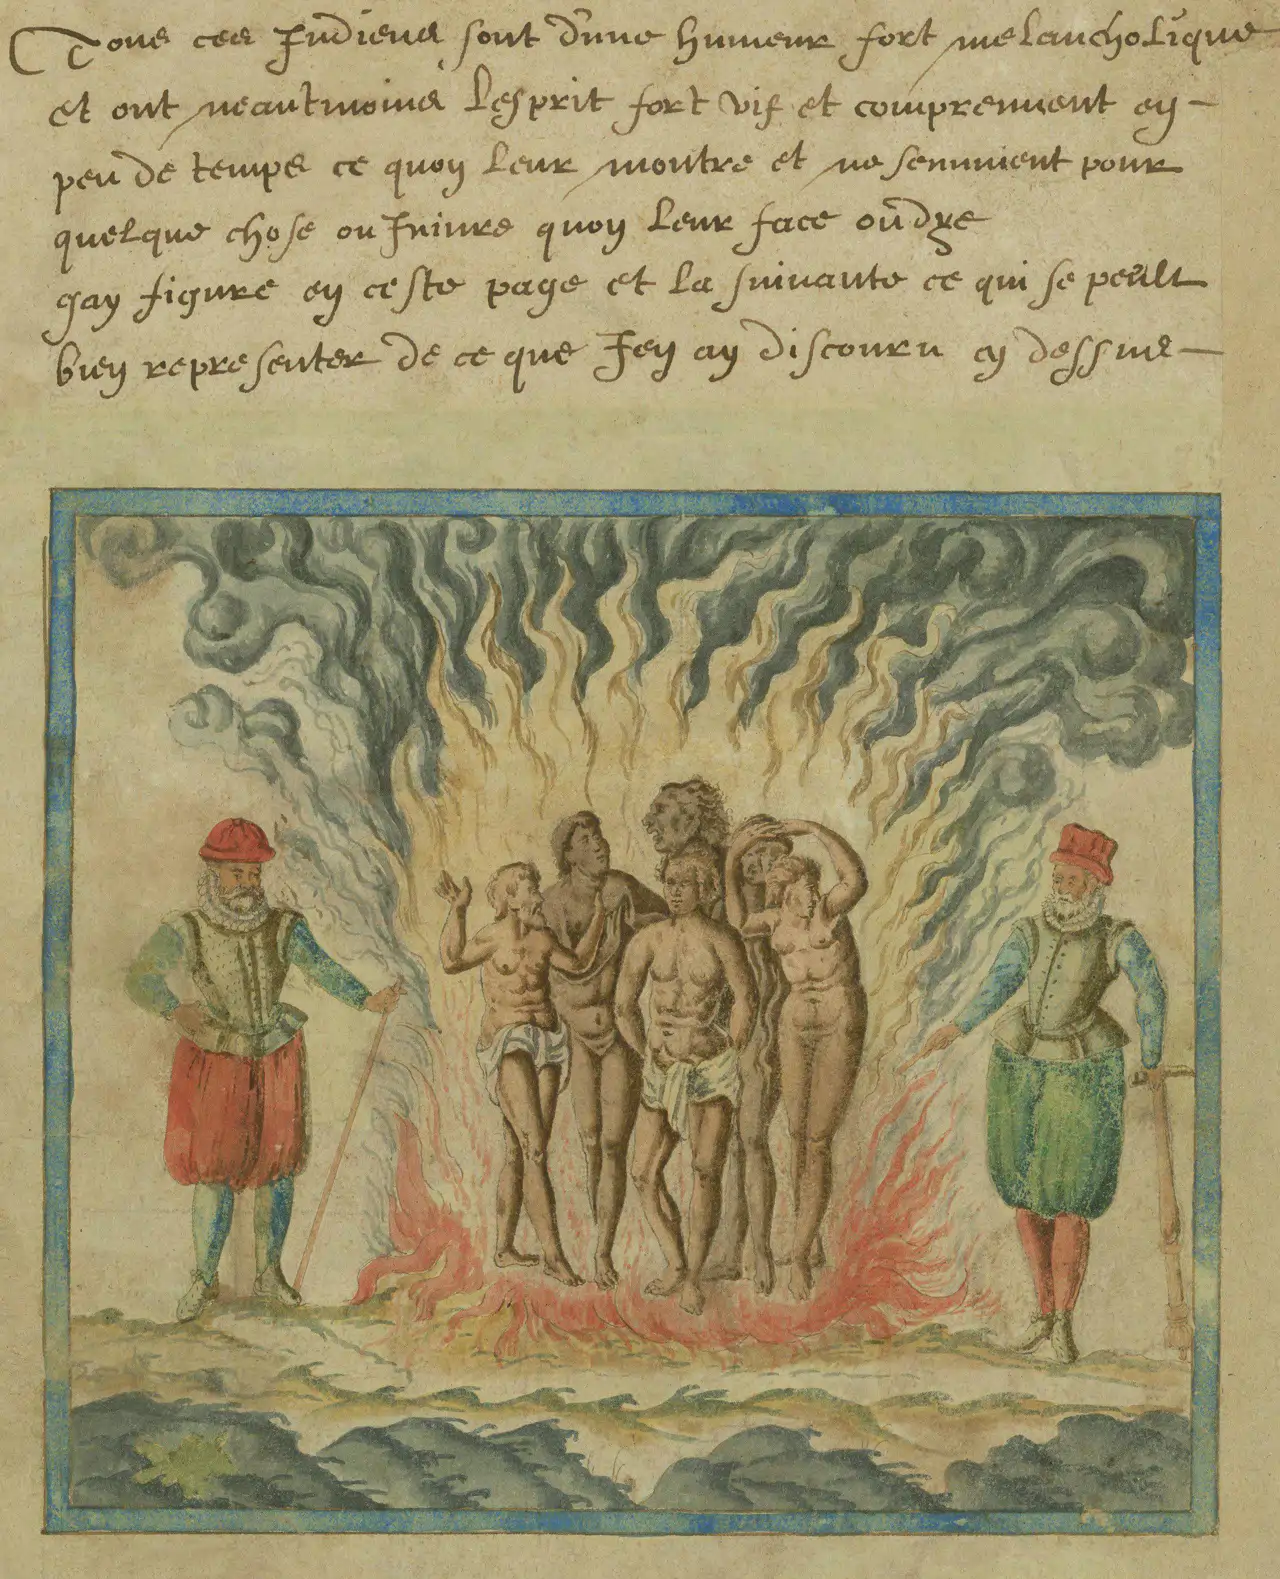 Tous ces Indiens sont d'une humeur fort melancholique
et ont neantmoins l'esprit fort vif et comprennent en
peu de temps ce quon leur montre et ne sennuient pour
quelque chose ou Iniure quon leur face oudre
Jay figuré en ceste page et la suivante ce qui se peult
bien representer de ce que Jen ay discouru cy dessus